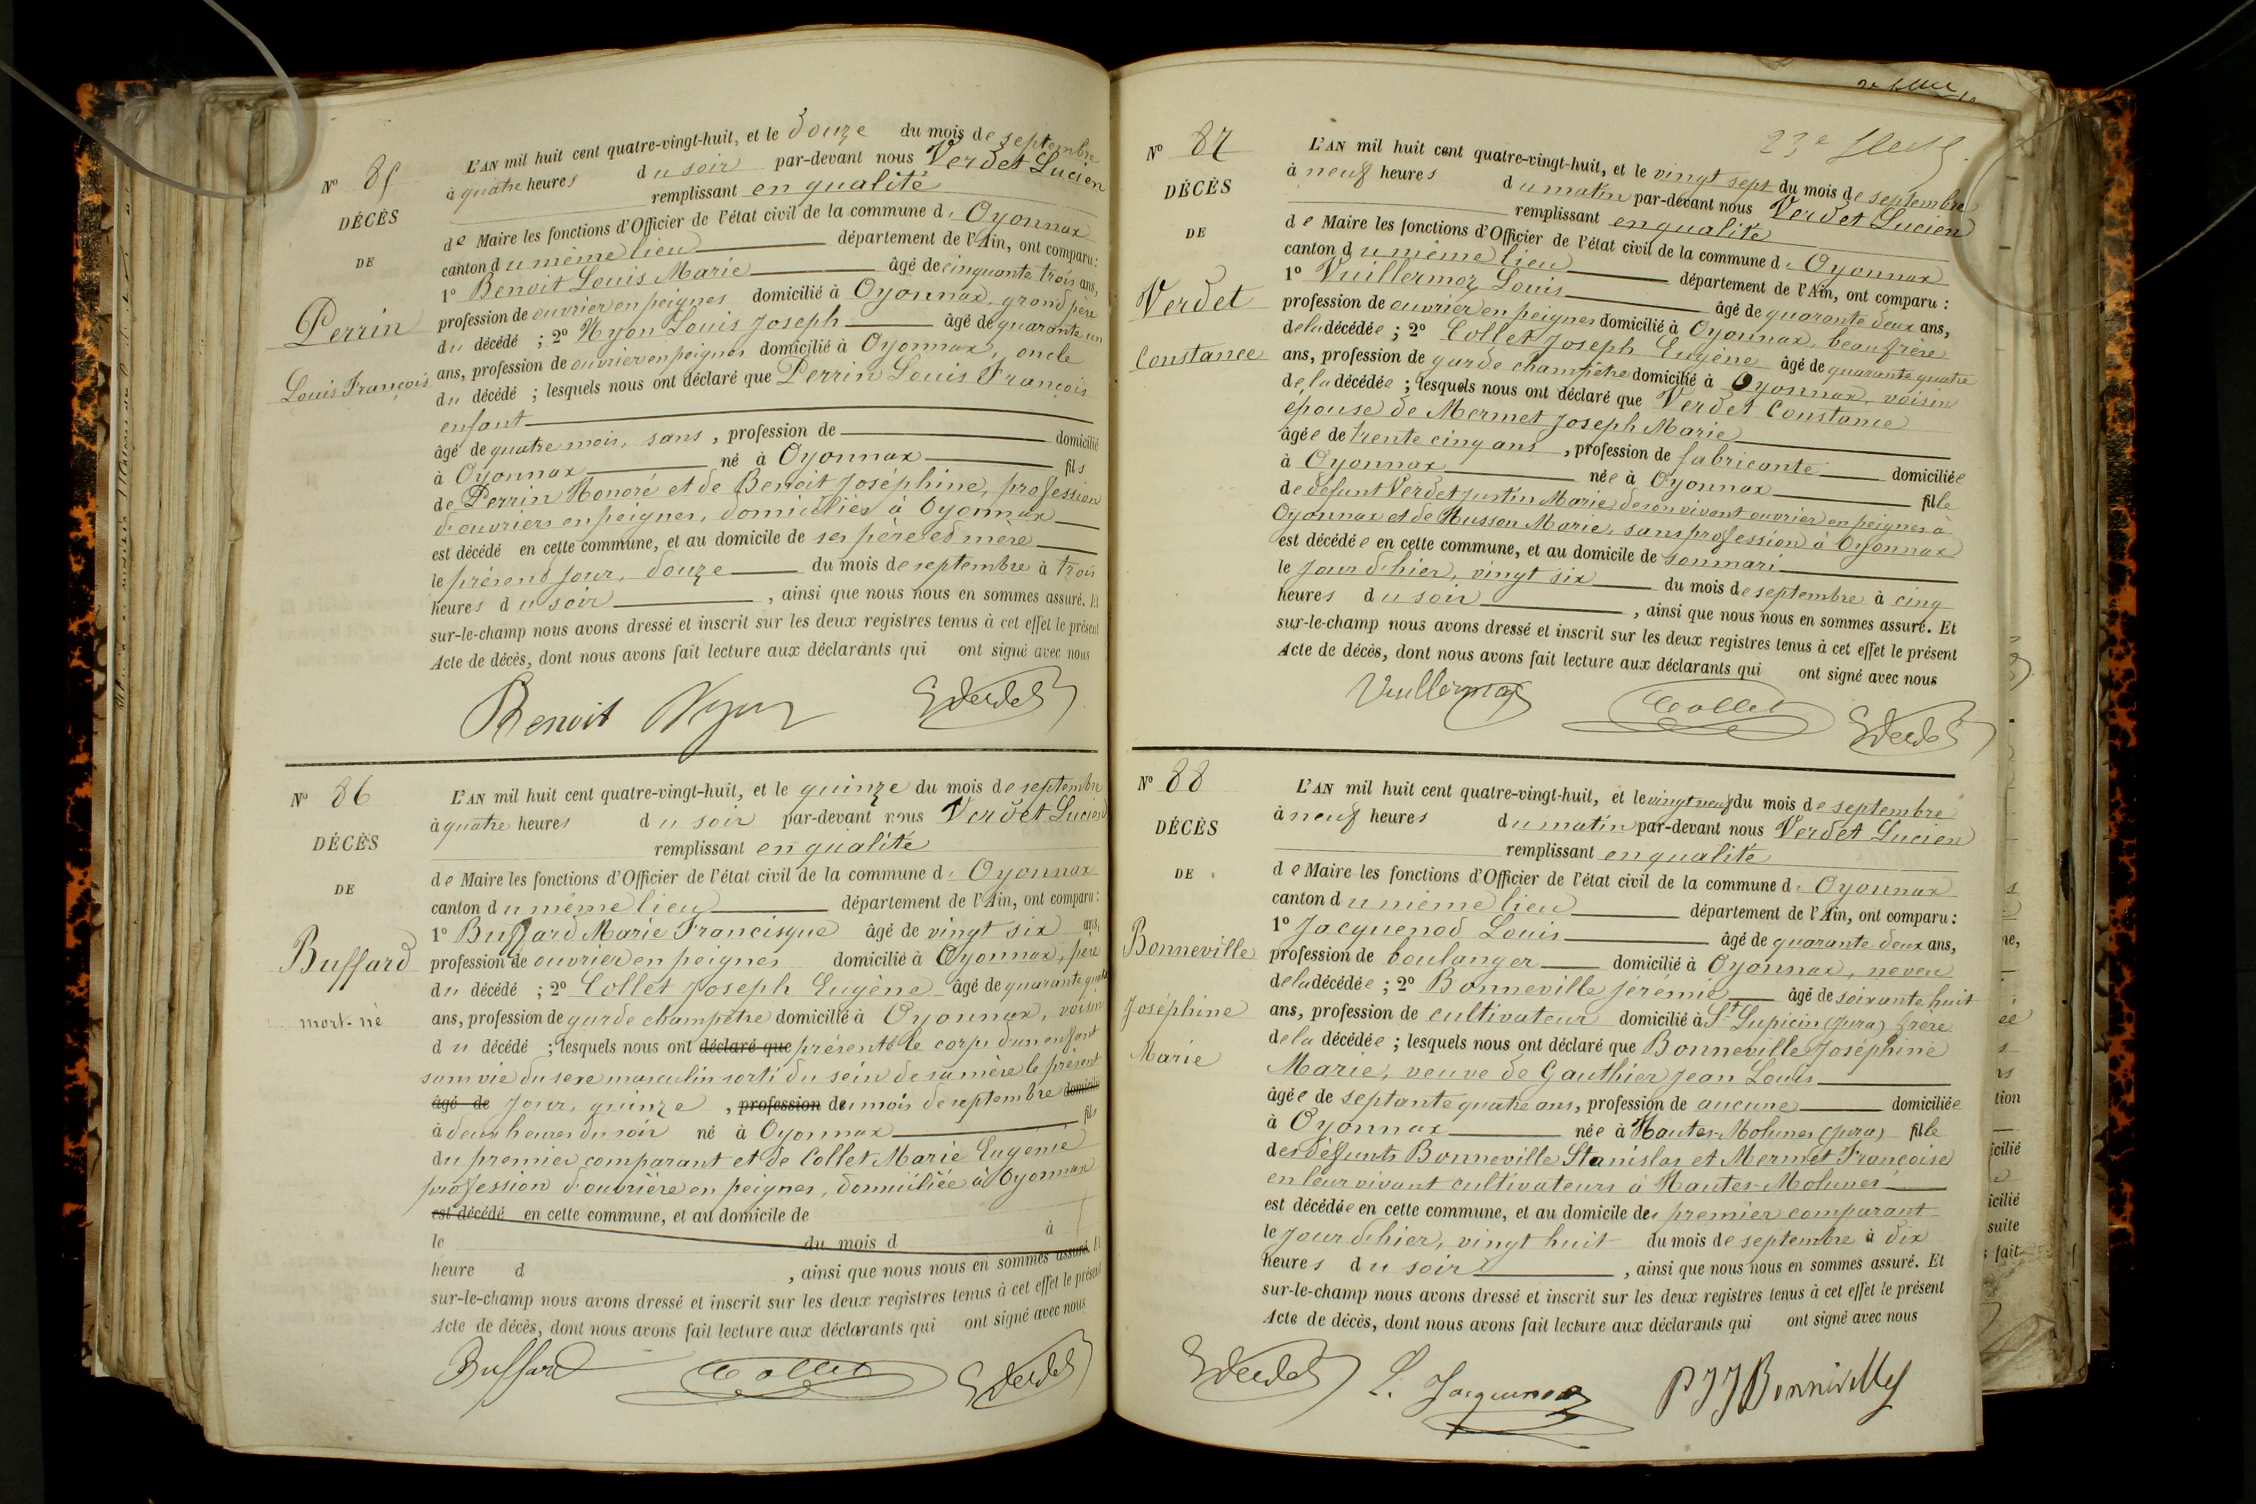 Nº 85
DÉCÈS
DE
Perrin
Louis François
L'AN mil huit cent quatre-vingt-huit, et le douze du mois de septembre
à quatre heures du soir par-devant nous Verdet Lucien
remplissant en qualité
de Maire les fonctions d'Officier de l'état civil de la commune d. Oyonnax
canton du même lieu département de l'Ain, ont comparu :
1º Benoit Louis Marie âgé de cinquante trois ans,
profession de ouvrier en peignes domicilié à Oyonnax, grand père
du décédé ; 2º Nyon Louis Joseph âgé de quarante un
ans, profession de ouvrier en peignes domicilié à Oyonnax, oncle
du décédé ; lesquels nous ont déclaré que Perrin Louis François
enfant
âgé de quatre mois, sans, profession de domicilié
à Oyonnax né à Oyonnax fils
de Perrin Honoré et de Benoit Joséphine, profession
d'ouvriers en peignes, domiciliés à Oyonnax
est décédé en cette commune, et au domicile de ses père et mère
le présent jour, douze du mois de septembre à trois
heures du soir, ainsi que nous nous en sommes assuré. Et
sur-le-champ nous avons dressé et inscrit sur les deux registres tenus à cet effet le présent
Acte de décès, dont nous avons fait lecture aux déclarants qui ont signé avec nous
Benoit Nyon Verdet
Nº 86
DÉCÈS
DE
Buffard
mort-né
L'AN mil huit cent quatre-vingt-huit, et le quinze du mois de septembre
à quatre heures du soir par-devant nous Verdet Lucien
remplissant en qualité
de Maire les fonctions d'Officier de l'état civil de la commune d. Oyonnax
canton du même lieu département de l'Ain, ont comparu :
1º Buffard Marie Francisque âgé de vingt six ans,
profession de ouvrier en peignes domicilié à Oyonnax, père
du décédé ; 2º Collet Joseph Eugène âgé de quarante quatre
ans, profession de garde champêtre domicilié à Oyonnax, voisin
du décédé ; lesquels nous ont déclaré que présenté le corps d'un enfant
sans vie du sexe masculin sorti du sein de sa mère le présent
âgé de jour, quinze, profession du mois de septembre domicilié
à deux heures du soir né à Oyonnax fils
du premier comparant et de Collet Marie Eugenie
profession d'ouvrière en peignes, domiciliée à Oyonnax
est décédé en cette commune, et au domicile de
le du mois d à
heure d, ainsi que nous nous en sommes assuré. Et
sur-le-champ nous avons dressé et inscrit sur les deux registres tenus à cet effet le présent
Acte de décès, dont nous avons fait lecture aux déclarants qui ont signé avec nous
Buffard Collet Verdet
Nº 87
DÉCÈS
DE
Verdet
Constance
L'AN mil huit cent quatre-vingt-huit, et le vingt sept du mois de septembre
à neuf heures du matin par-devant nous Verdet Lucien
remplissant en qualité
de Maire les fonctions d'Officier de l'état civil de la commune d. Oyonnax
canton du même lieu département de l'Ain, ont comparu :
1º Vuillermoz Louis âgé de quarante deux ans,
profession de ouvrier en peignes domicilié à Oyonnax, beau frère
de la décédée ; 2º Collet Joseph Eugène âgé de quarante quatre
ans, profession de garde champêtre domicilié à Oyonnax, voisin
de la décédée ; lesquels nous ont déclaré que Verdet Constance
épouse de Mermet Joseph Marie
âgée de trente cinq ans, profession de fabricante domiciliée
à Oyonnax née à Oyonnax fille
de défunt Verdet Justin Marie de son vivant ouvrier en peignes à
Oyonnax et de Husson Marie, sans profession à Oyonnax
est décédée en cette commune, et au domicile de son mari
le jour d'hier, vingt six du mois de septembre à cinq
heures du soir, ainsi que nous nous en sommes assuré. Et
sur-le-champ nous avons dressé et inscrit sur les deux registres tenus à cet effet le présent
Acte de décès, dont nous avons fait lecture aux déclarants qui ont signé avec nous
Vuillermoz Collet Verdet
Nº 88
DÉCÈS
DE
Bonneville
Joséphine
Marie
L'AN mil huit cent quatre-vingt-huit, et le vingt neuf du mois de septembre
à neuf heures du matin par-devant nous Verdet Lucien
remplissant en qualité
de Maire les fonctions d'Officier de l'état civil de la commune d. Oyonnax
canton du même lieu département de l'Ain, ont comparu :
1º Jacquenod Louis âgé de quarante deux ans,
profession de boulanger domicilié à Oyonnax, neveu
de la décédée ; 2º Bonneville Jérémie âgé de soixante huit
ans, profession de cultivateur domicilié à St Lupicin (Jura) frère
de la décédée ; lesquels nous ont déclaré que Bonneville Joséphine
Marie, veuve de Gauthier Jean Louis
âgée de septante quatre ans, profession de aucune domiciliée
à Oyonnax née à Hautes-Molunes (Jura) fille
des défunts Bonneville Stanislas et Mermet Françoise
en leur vivant cultivateurs à Hautes-Molunes
est décédée en cette commune, et au domicile du premier comparant
le jour d'hier, vingt huit du mois de septembre à dix
heures du soir, ainsi que nous nous en sommes assuré. Et
sur-le-champ nous avons dressé et inscrit sur les deux registres tenus à cet effet le présent
Acte de décès, dont nous avons fait lecture aux déclarants qui ont signé avec nous
Verdet L. Jacquenod PJJ Bonneville